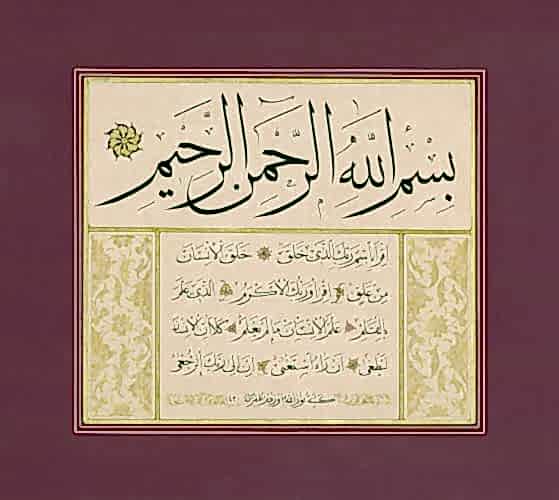 بِسْمِ اللَّهِ الرَّحْمَنِ الرَّحِيمِ
اِقْرَأْ بِاسْمِ رَبِّكَ الَّذِي خَلَقَ خَلَقَ الْاِنْسَانَ
مِنْ عَلَقٍ اِقْرَأْ وَرَبُّكَ الْاَكْرَمُ الَّذِي عَلَّمَ
بِالْقَلَمِ عَلَّمَ الْاِنْسَانَ مَا لَمْ يَعْلَمْ كَلَّا اِنَّ الْاِنْسَانَ
لَيَطْغَى اَنْ رَآهُ اسْتَغْنَى اِنَّ اِلَى رَبِّكَ الرُّجْعَى